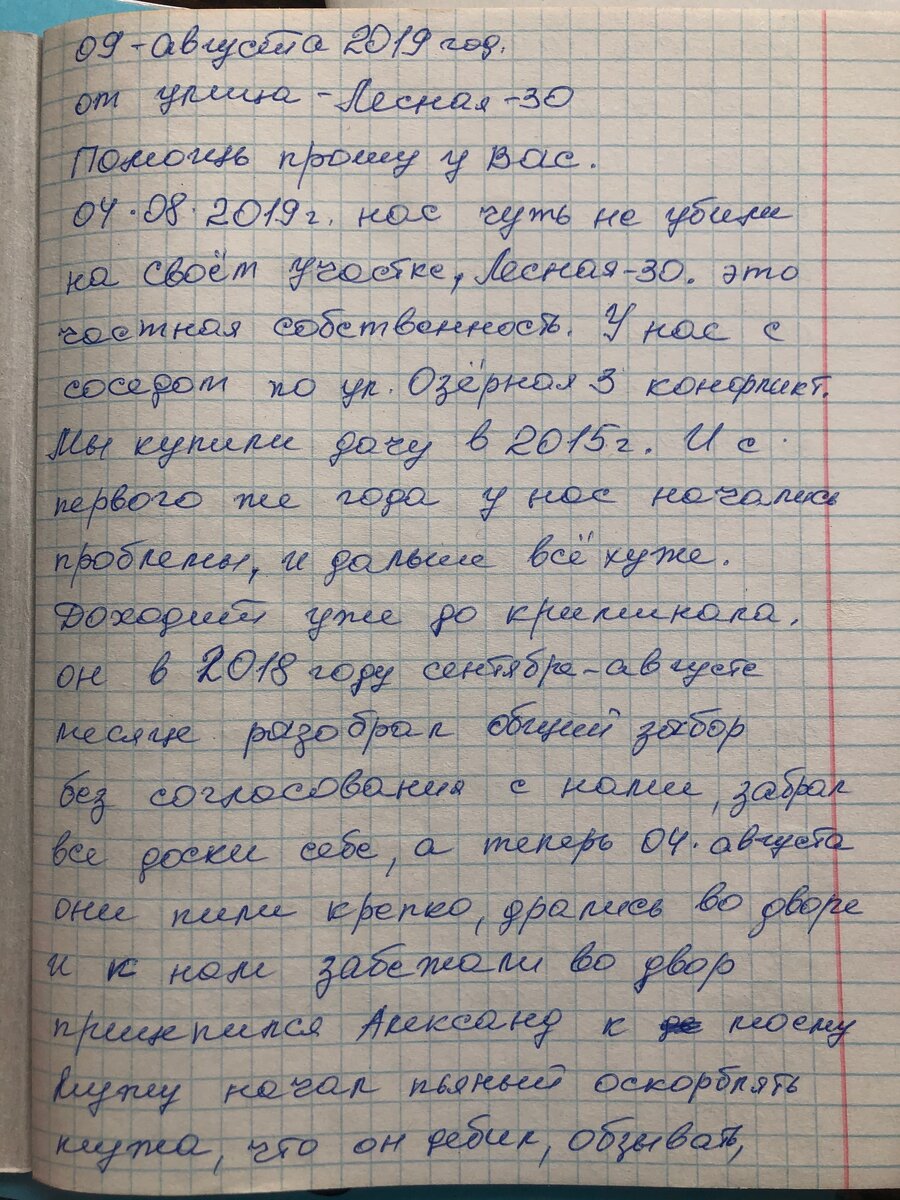 09-августа 2019 год.
от улица-Лесная-30
Помощь прошу у Вас.
04.08.2019г. нас чуть не убили
на своём участке, Лесная-30. это
частная собственность. У нас с
соседом по ул. Озёрная 3 конфликт.
Мы купили дачу в 2015г. И с
первого же года у нас начались
проблемы, и дальше всё хуже.
Доходит уже до криминала.
он в 2018 году сентябре-августе
месяце разобрал общий забор
без согласования с нами, забрал
все доски себе, а теперь 04.августа
они пили крепко, дрались во дворе
и к нам забежали во двор
прицепился Александ к моему
мужу начал пьяный оскорблять
мужа, что он дебил, обзывать,